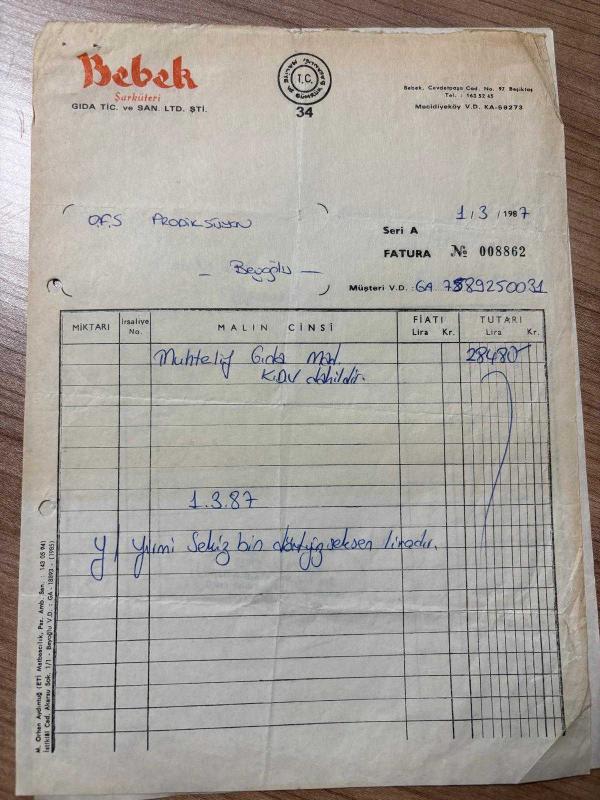 Bebek
Şarküteri
GIDA TİC. ve SAN. LTD. ŞTİ.
T.C.
MALİYE VE GÜMRÜK BAKANLIĞI
34
Bebek, Cevdetpaşa Cad. No. 97 Beşiktaş
Tel. : 163 52 45
Mecidiyeköy V.D. KA-69273
O.F.S PRODİKSÜYON
— Beyoğlu —
1 / 3 / 1987
Seri A
FATURA № 008862
Müşteri V.D. : GA. 7589250031
MİKTARI
İrsaliye No.
MALIN CİNSİ
FİATI
Lira Kr.
TUTARI
Lira Kr.
Muhtelif Gıda Mad. 28480
KDV dahildir.
1.3.87
Y/ Yirmi Sekiz bin dörtyüz seksen liradır.
M. Orhan Aydıntuğ (ETİ Matbaacılık, Paz. Amb. San. : 143 05 94)
İstiklâl Cad. Akarsu Sok. 1/1 - Beyoğlu V.D. : GA - 18093 - (1985)